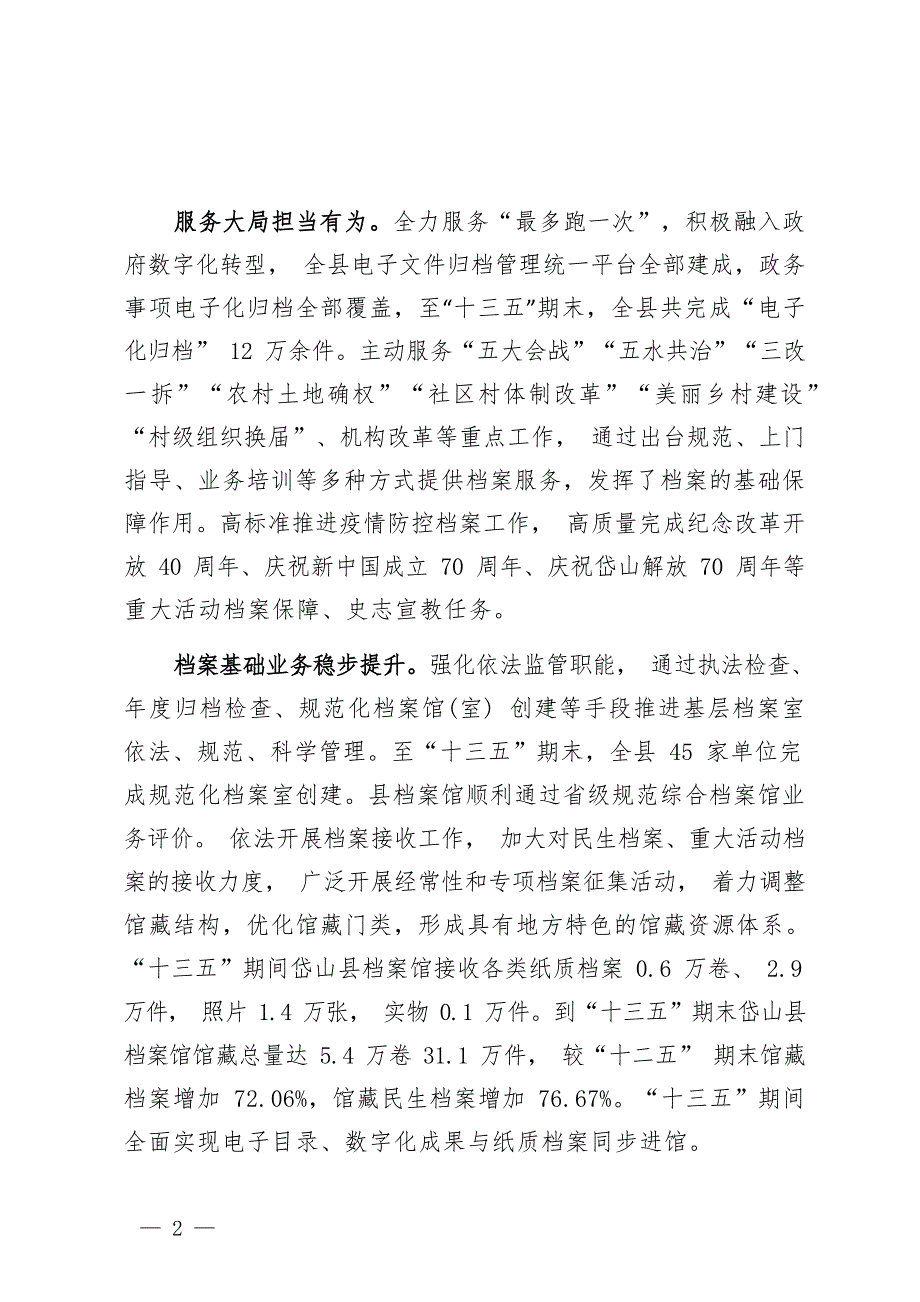 服务大局担当有为。全力服务“最多跑一次”，积极融入政
府数字化转型， 全县电子文件归档管理统一平台全部建成，政务
事项电子化归档全部覆盖，至“十三五”期末，全县共完成“电子
化归档” 12 万余件。主动服务“五大会战”“五水共治”“三改
一拆”“农村土地确权”“社区村体制改革”“美丽乡村建设”
“村级组织换届”、机构改革等重点工作， 通过出台规范、上门
指导、业务培训等多种方式提供档案服务，发挥了档案的基础保
障作用。高标准推进疫情防控档案工作， 高质量完成纪念改革开
放 40 周年、庆祝新中国成立 70 周年、庆祝岱山解放 70 周年等
重大活动档案保障、史志宣教任务。
档案基础业务稳步提升。强化依法监管职能， 通过执法检查、
年度归档检查、规范化档案馆(室) 创建等手段推进基层档案室
依法、规范、科学管理。至“十三五”期末，全县 45 家单位完
成规范化档案室创建。县档案馆顺利通过省级规范综合档案馆业
务评价。 依法开展档案接收工作， 加大对民生档案、重大活动档
案的接收力度， 广泛开展经常性和专项档案征集活动， 着力调整
馆藏结构，优化馆藏门类，形成具有地方特色的馆藏资源体系。
“十三五”期间岱山县档案馆接收各类纸质档案 0.6 万卷、 2.9
万件， 照片 1.4 万张， 实物 0.1 万件。到“十三五”期末岱山县
档案馆馆藏总量达 5.4 万卷 31.1 万件， 较“十二五” 期末馆藏
档案增加 72.06%，馆藏民生档案增加 76.67%。“十三五”期间
全面实现电子目录、数字化成果与纸质档案同步进馆。
— 2 —